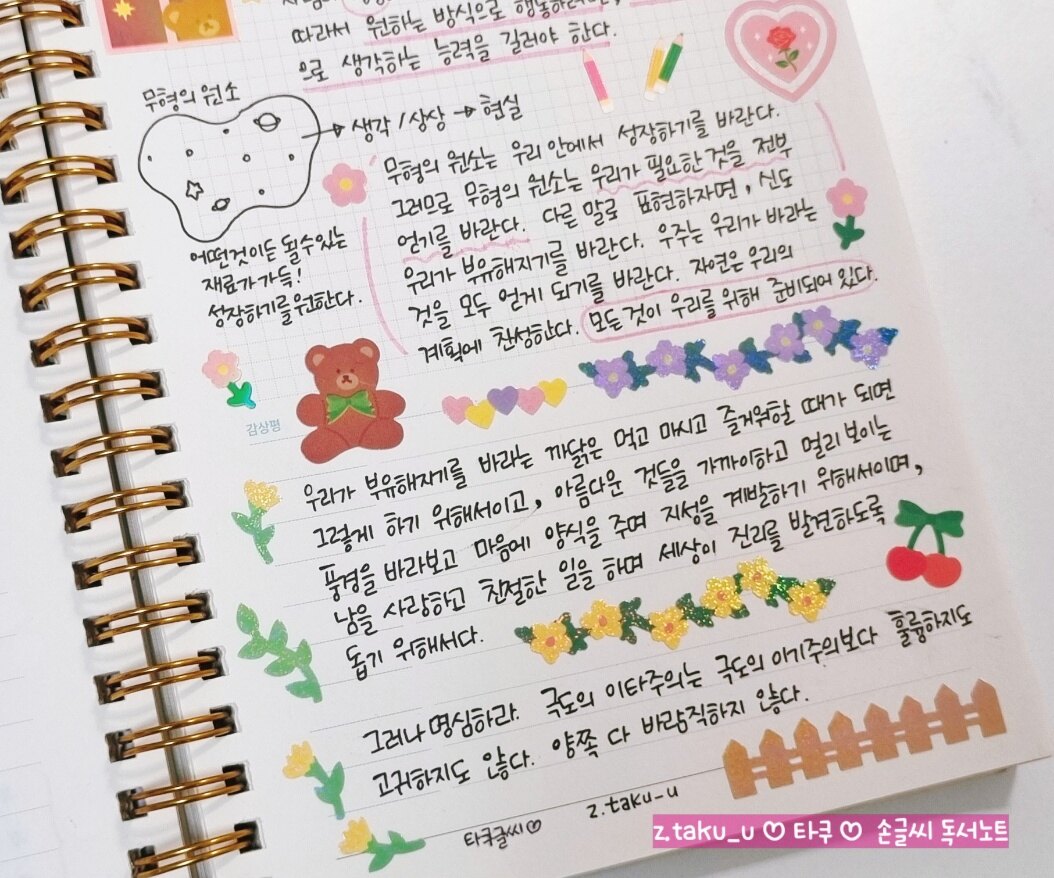 따라서 원하는 방식으로 행동하려면,
으로 생각하는 능력을 길러야 한다.
무형의 원소
→ 생각 / 상상 → 현실
무형의 원소는 우리 안에서 성장하기를 바란다.
그러므로 무형의 원소는 우리가 필요한 것을 전부
얻기를 바란다. 다른 말로 표현하자면, 신도
우리가 부유해지기를 바란다. 우주는 우리가 바라는
것을 모두 얻게 되기를 바란다. 자연은 우리의
계획에 찬성한다. 모든 것이 우리를 위해 준비되어 있다.
어떤것이든 될수있는
재료가 가득!
성장하기를 원한다.
감상평
우리가 부유해지기를 바라는 까닭은 먹고 마시고 즐거워할 때가 되면
그렇게 하기 위해서이고, 아름다운 것들을 가까이하고 멀리 보이는
풍경을 바라보고 마음에 양식을 주며 지성을 계발하기 위해서이며,
남을 사랑하고 친절한 일을 하며 세상이 진리를 발견하도록
돕기 위해서다.
그러나 명심하라. 극도의 이타주의는 극도의 이기주의보다 훌륭하지도
고귀하지도 않다. 양쪽 다 바람직하지 않다.
타쿠글씨♡
z.taku_u
z.taku_u ♡ 타쿠 ♡ 손글씨 독서노트